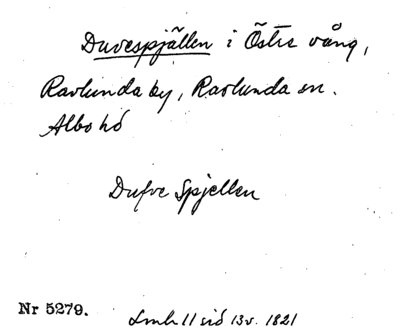 Duvespjällen i Östre vång,
Ravlunda by, Ravlunda sn.
Albo hd
Dufve Spjellen
Nr 5279.
Lmh 11 sid 13 v. 1821